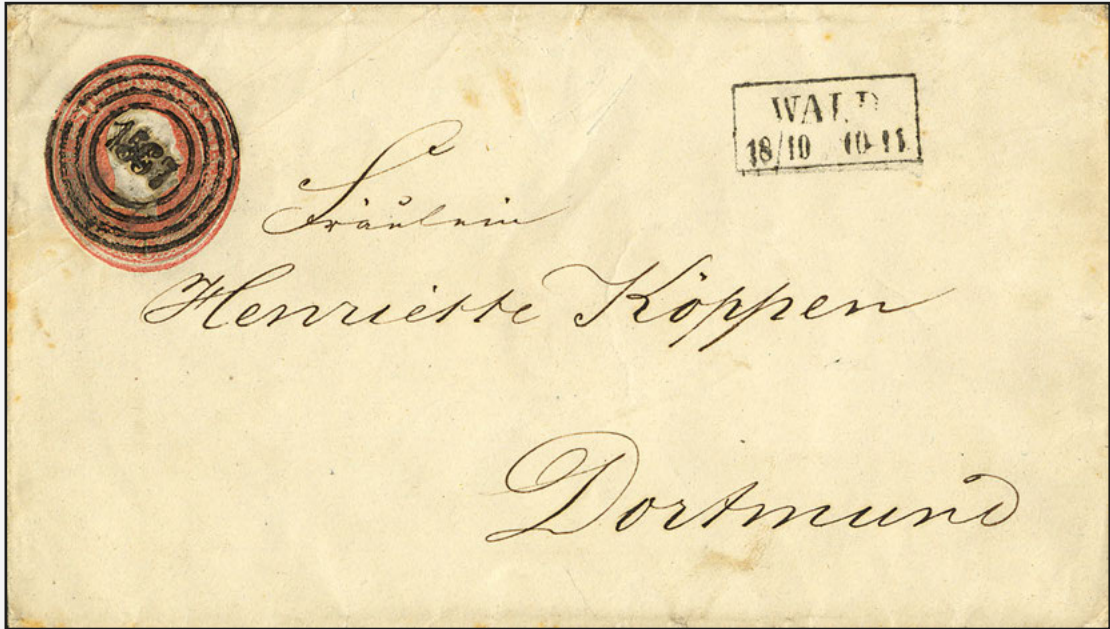 WALD
18/10 10-11
Fräulein
Henriette Köppen
Dortmund